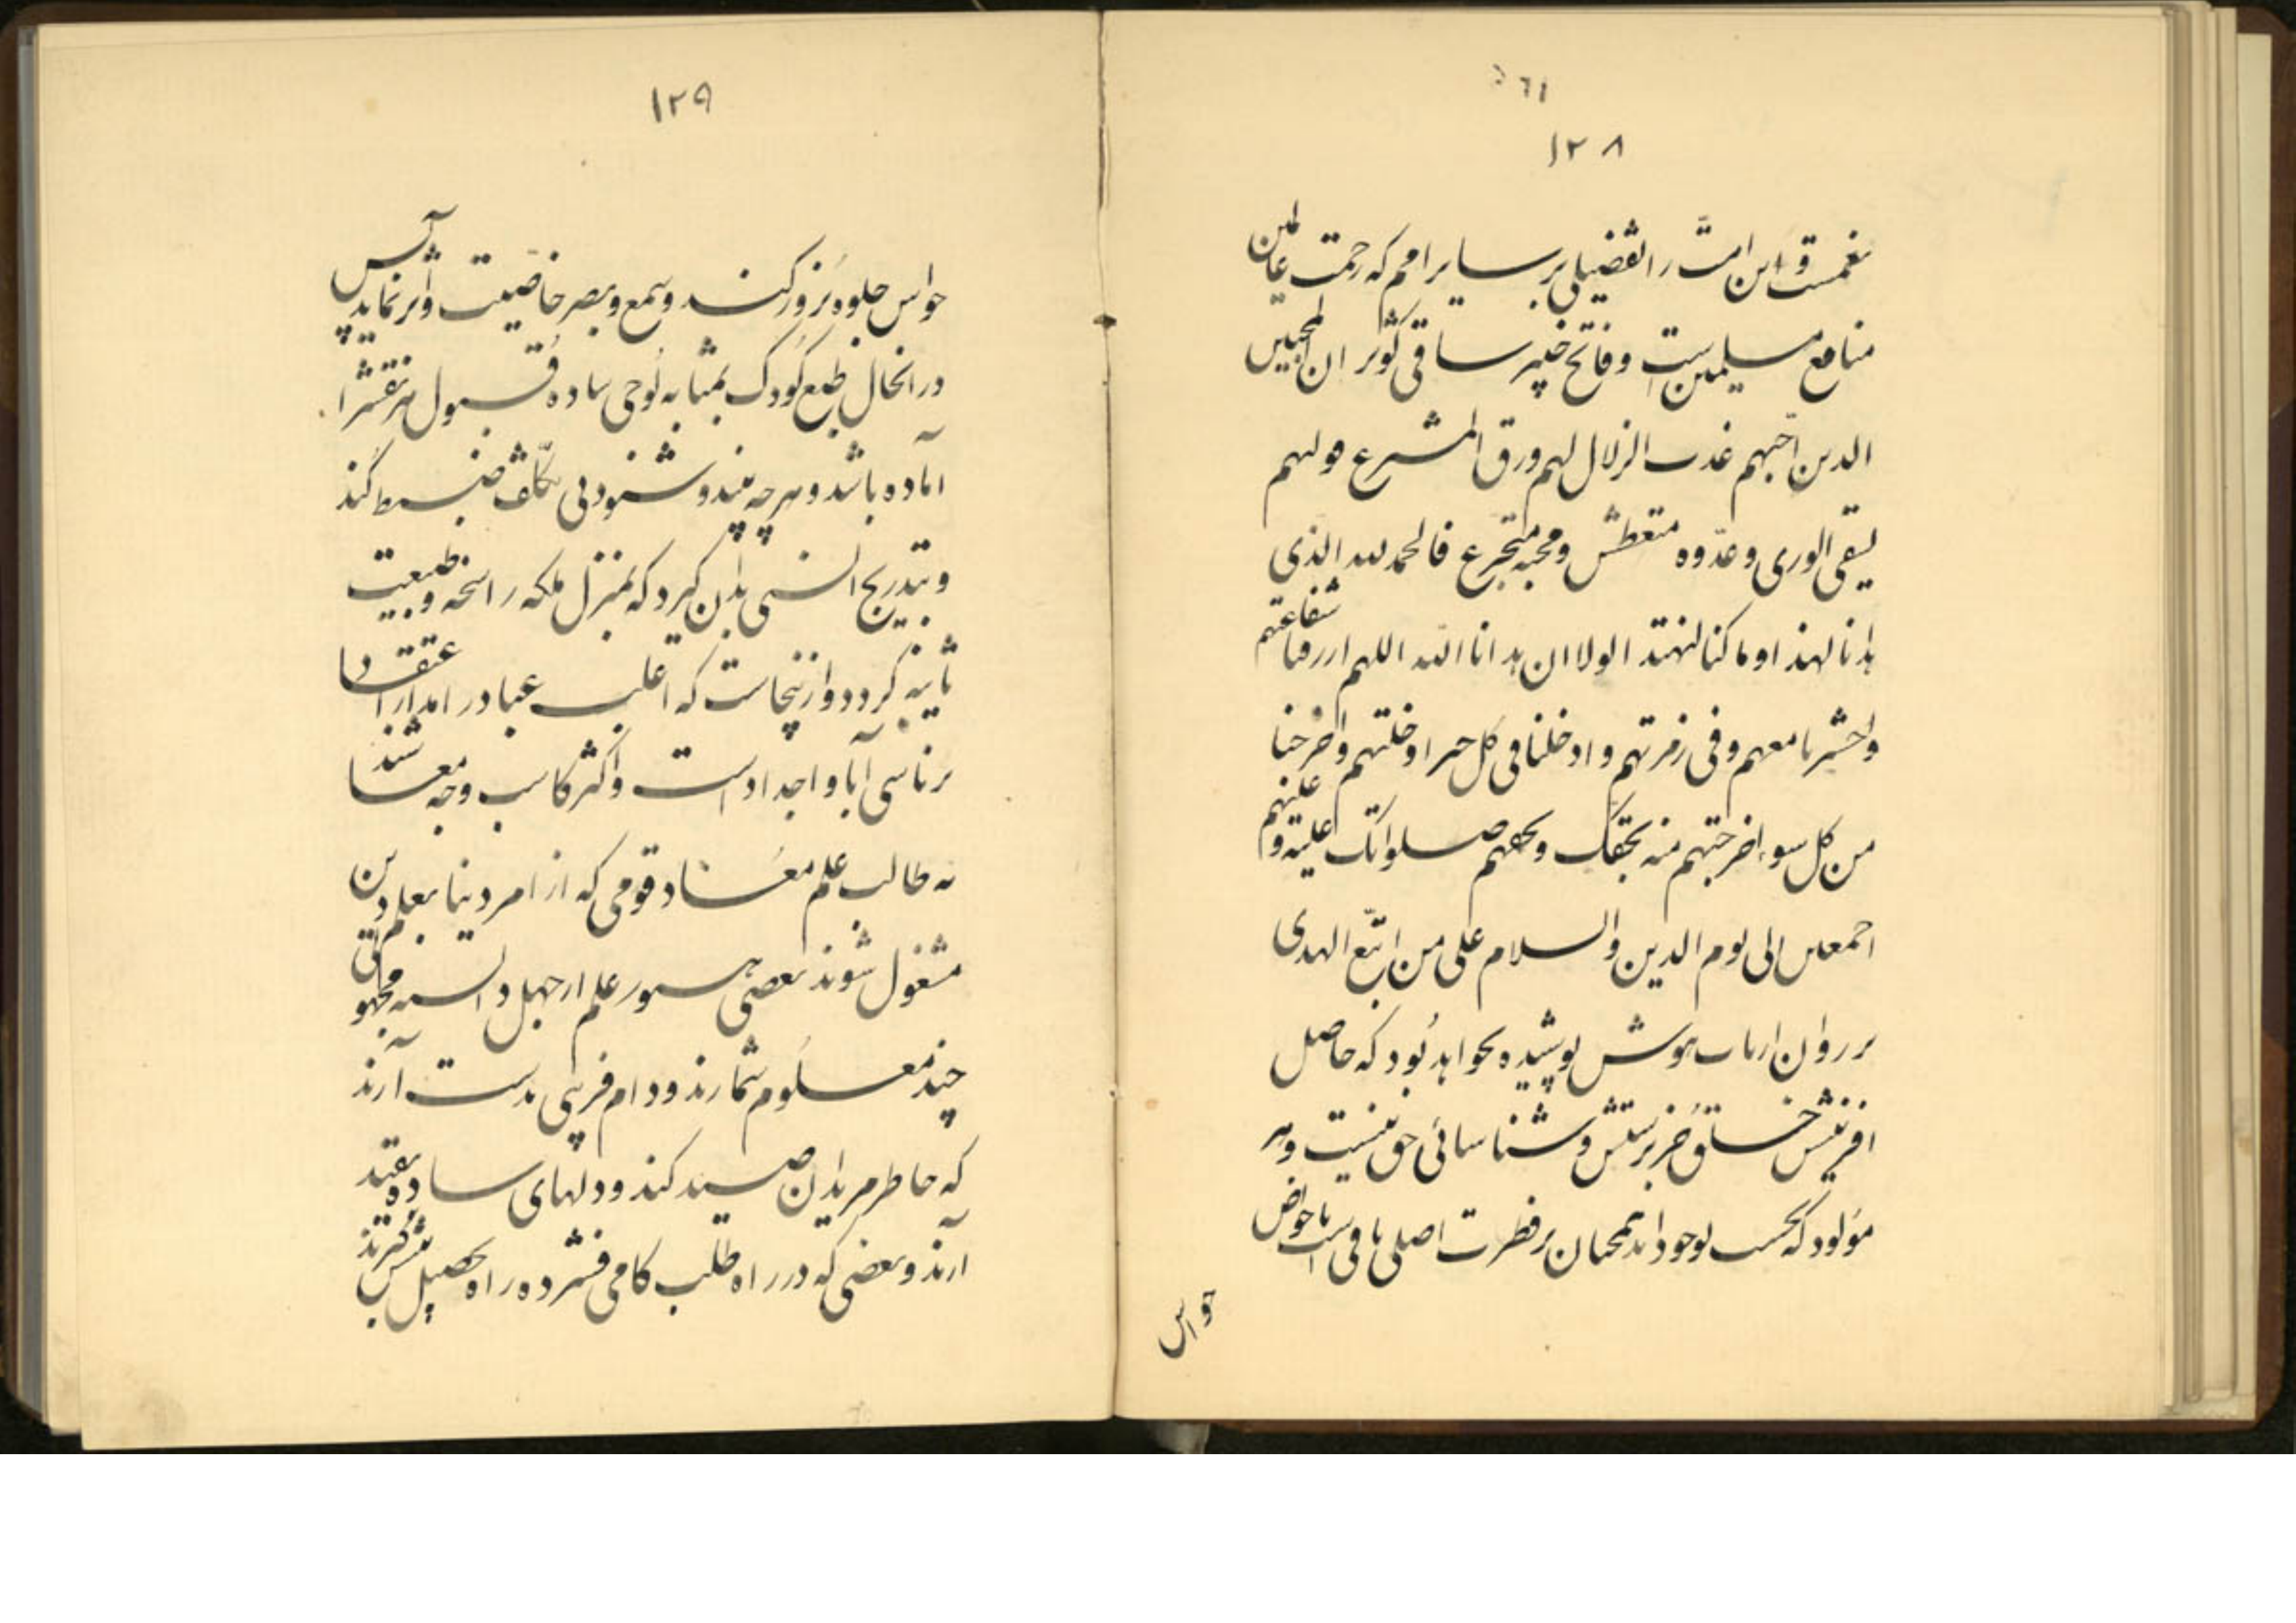 ٥٦١
١٢٨
نعمست و این امت را تفضیلی بر سایر امم که رحمت عالمین
منافع مسلمین است و فاتح خیبر ساقی کوثر ان المحبین
الدین احبهم عذب الزلال لهم ورق المشرع مولهم
یسقی الوری وعدوه متعطش ومحبه متجرع فالحمدلله الذی
هدانا لهذا وما کنا لنهتد الولا ان هدانا الله اللهم ارزقنا شفاعتهم
واحشرنا معهم وفی زمرتهم وادخلنا فی کل خیر ادخلتهم واخرجنا
من کل سوء اخرجتهم منه بحقک وبحقهم صلواتک علیه و علیهم
اجمعین الی یوم الدین والسلام علی من اتبع الهدی
بر روان ارباب هوش پوشیده نخواهد بود که حاصل
افرینش خلق جز پرستش و شناسائی حق نیست و هر
مولود که بحسب بوجود اید همچنان بر فطرت اصلی باقی است تا حواس
حواس
١٢٩
حواس جلوه بروز کند و سمع و بصر خاصیت و اثر نماید پس
در انحال طبع کودک بمثابه لوحی ساده قبول هر نقش را
آماده باشد و هر چه بیند و شنود بی تکلف ضبط کند
و بتدریج انسی بدان گیرد که بمنزل ملکه راسخه و طبیعت
ثانیه گردد و ازینجاست که اغلب عباد را مدار اعتقاد
بر تاسی آبا و اجداد است و اکثر کاسب وجه معاشند
نه طالب علم معاد قومی که از امر دنیا بعلم دین
مشغول شوند بعضی هنوز علم از جهل ندانسته مجهولاتی
چند معلوم شمارند و دام فریبی بدست آرند
که خاطر مریدان صید کنند و دلهای ساده بقید
آرند و بعضی که در راه طلب کامی فشرده راه تحصیل پیش گیرند